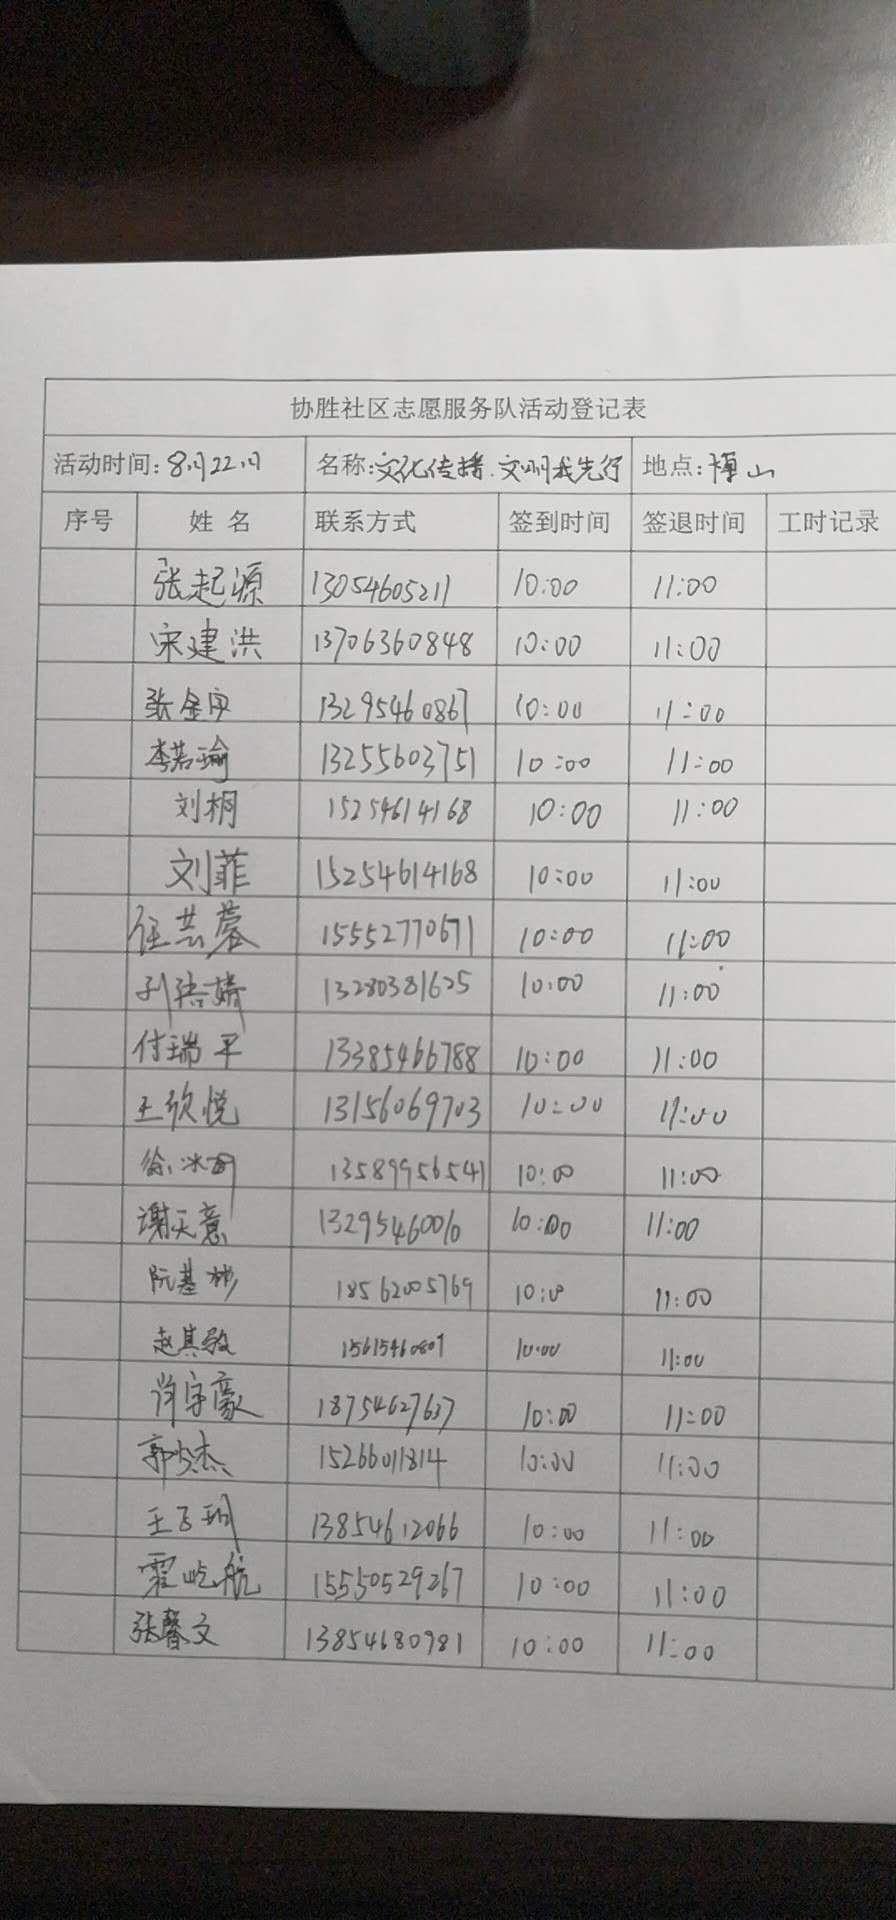 协胜社区志愿服务队活动登记表
活动时间:8月22日 名称:文化传播.文明我先行 地点:博山
序号 姓 名 联系方式 签到时间 签退时间 工时记录
张起源 13054605211 10:00 11:00
宋建洪 13706360848 10:00 11:00
张金 13295460867 10:00 11:00
李若瑜 13255603751 10:00 11:00
刘桐 15254614168 10:00 11:00
刘菲 15254614168 10:00 11:00
任芸蓉 15552770671 10:00 11:00
13280381625 10:00 11:00
付瑞平 13385466788 10:00 11:00
王欣悦 13156069703 10:00 11:00
徐冰 13589956541 10:00 11:00
谢天意 13295460010 10:00 11:00
阮基彬 18562005769 10:00 11:00
赵其毅 15615460807 10:00 11:00
宇豪 18754627637 10:00 11:00
郭 杰 15266011814 10:00 11:00
王 玥 13854612066 10:00 11:00
霍屹航 15550529267 10:00 11:00
张馨文 13854680981 10:00 11:00